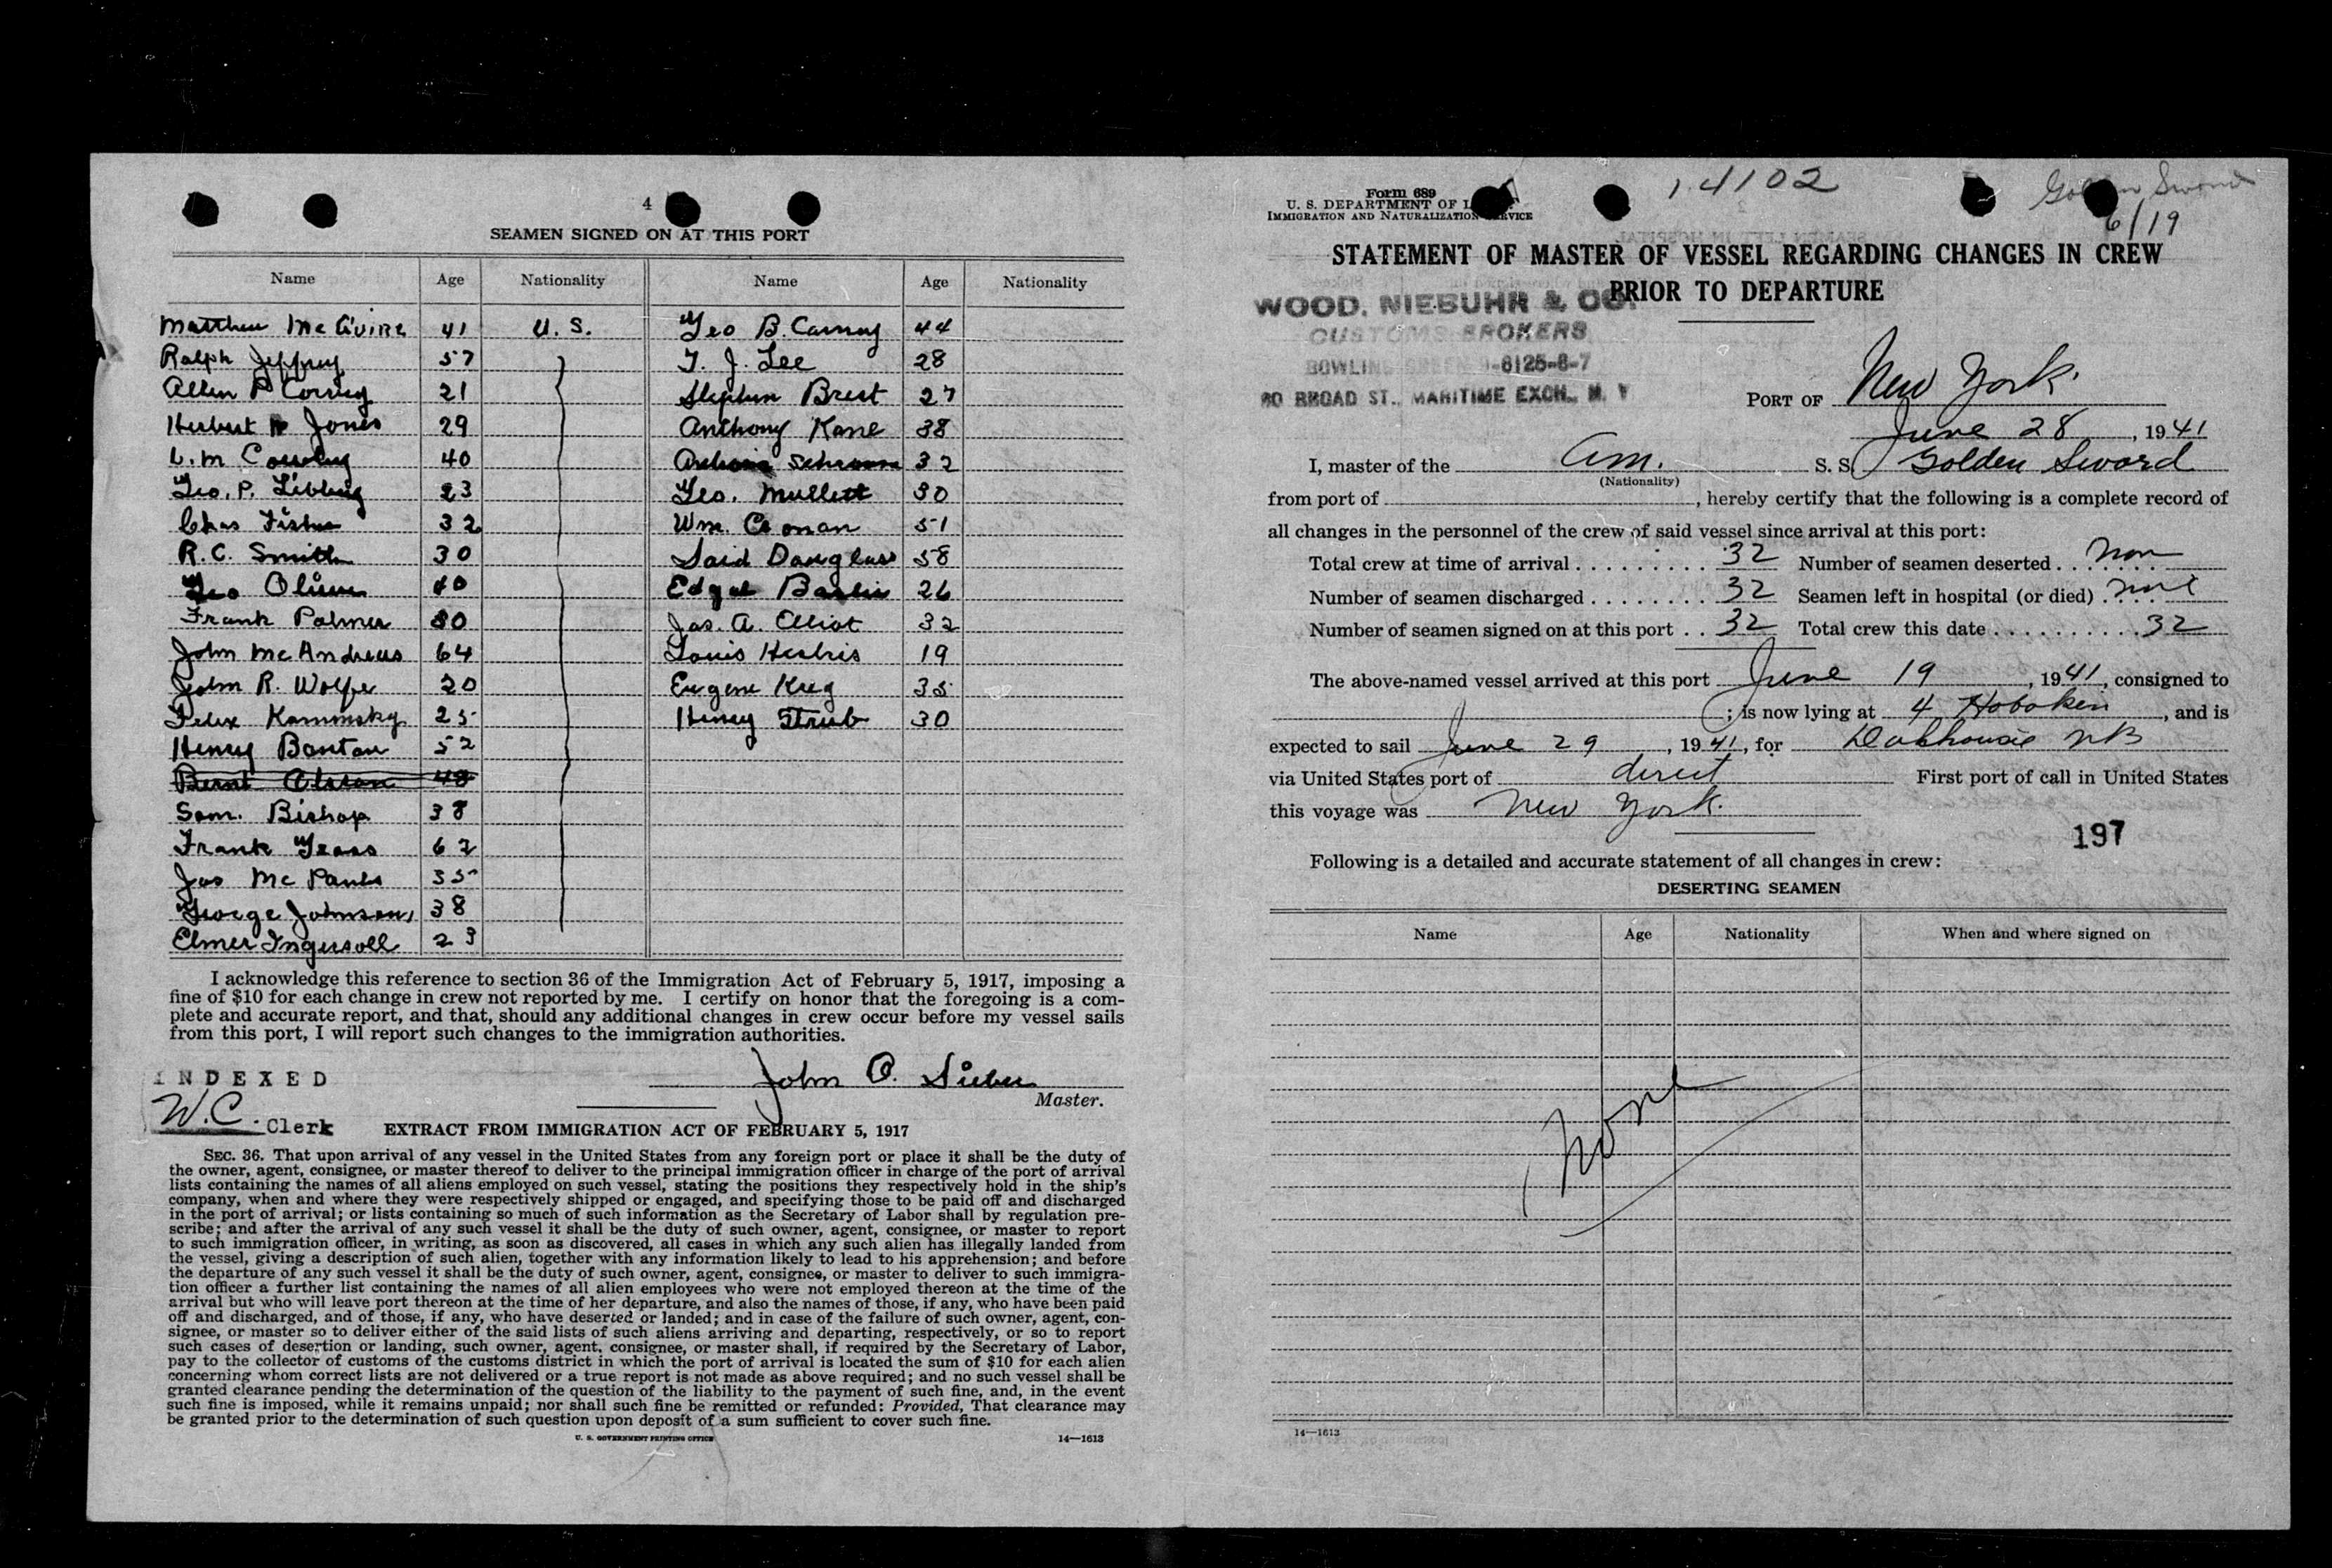 4
SEAMEN SIGNED ON AT THIS PORT
Name Age Nationality Name Age Nationality
Matthew McGuire 41 U.S. Geo B. Carney 44
Ralph Jeffrey 57 T. J. Lee 28
Allen P 21 Stephen Brest 27
Herbert Jones 29 Anthony Kane 38
L.M 40 32
Geo. P. 23 Geo. Mullett 30
Chas Fisher 32 Wm. 51
R.C. Smith 30 Said Douglas 58
Geo 40 Edgar 26
Frank Palmer 30 Jas. A. Elliot 32
John McAndrews 64 Louis 19
John R. Wolfe 20 Eugene Krug 35
Felix Kaminsky 25 Henry Straub 30
Henry 52
Bernt Olsson 48
Sam. Bishop 38
Frank 62
Jas Mc 35
George Johnson 38
Elmer Ingersoll 23
I acknowledge this reference to section 36 of the Immigration Act of February 5, 1917, imposing a
fine of $10 for each change in crew not reported by me. I certify on honor that the foregoing is a com-
plete and accurate report, and that, should any additional changes in crew occur before my vessel sails
from this port, I will report such changes to the immigration authorities.
INDEXED
John O. Sieber
Master.
W.C. Clerk
EXTRACT FROM IMMIGRATION ACT OF FEBRUARY 5, 1917
SEC. 36. That upon arrival of any vessel in the United States from any foreign port or place it shall be the duty of
the owner, agent, consignee, or master thereof to deliver to the principal immigration officer in charge of the port of arrival
lists containing the names of all aliens employed on such vessel, stating the positions they respectively hold in the ship's
company, when and where they were respectively shipped or engaged, and specifying those to be paid off and discharged
in the port of arrival; or lists containing so much of such information as the Secretary of Labor shall by regulation pre-
scribe; and after the arrival of any such vessel it shall be the duty of such owner, agent, consignee, or master to report
to such immigration officer, in writing, as soon as discovered, all cases in which any such alien has illegally landed from
the vessel, giving a description of such alien, together with any information likely to lead to his apprehension; and before
the departure of any such vessel it shall be the duty of such owner, agent, consignee, or master to deliver to such immigra-
tion officer a further list containing the names of all alien employees who were not employed thereon at the time of the
arrival but who will leave port thereon at the time of her departure, and also the names of those, if any, who have been paid
off and discharged, and of those, if any, who have deserted or landed; and in case of the failure of such owner, agent, con-
signee, or master so to deliver either of the said lists of such aliens arriving and departing, respectively, or so to report
such cases of desertion or landing, such owner, agent, consignee, or master shall, if required by the Secretary of Labor,
pay to the collector of customs of the customs district in which the port of arrival is located the sum of $10 for each alien
concerning whom correct lists are not delivered or a true report is not made as above required; and no such vessel shall be
granted clearance pending the determination of the question of the liability to the payment of such fine, and, in the event
such fine is imposed, while it remains unpaid; nor shall such fine be remitted or refunded: Provided, That clearance may
be granted prior to the determination of such question upon deposit of a sum sufficient to cover such fine.
U. S. GOVERNMENT PRINTING OFFICE 14—1613
Form 689
U. S. DEPARTMENT OF L
IMMIGRATION AND NATURALIZATION SERVICE
14102
Golden Sword
6/19
STATEMENT OF MASTER OF VESSEL REGARDING CHANGES IN CREW
PRIOR TO DEPARTURE
WOOD, NIEBUHR & CO.
CUSTOMS BROKERS
BOWLING GREEN 9-6125-6-7
80 BROAD ST., MARITIME EXCH., N. Y
PORT OF New York.
June 28, 1941
I, master of the Am. S. S. Golden Sword
(Nationality)
from port of , hereby certify that the following is a complete record of
all changes in the personnel of the crew of said vessel since arrival at this port:
Total crew at time of arrival . . . . . . . . . 32 Number of seamen deserted . . . . . . . non
Number of seamen discharged . . . . . . . . 32 Seamen left in hospital (or died) . . . . none
Number of seamen signed on at this port . . 32 Total crew this date . . . . . . . . . . 32
The above-named vessel arrived at this port June 19, 1941, consigned to
; is now lying at 4 Hoboken, and is
expected to sail June 29, 1941, for Dalhousie NB
via United States port of direct First port of call in United States
this voyage was New York.
197
Following is a detailed and accurate statement of all changes in crew:
DESERTING SEAMEN
Name Age Nationality When and where signed on
None
14—1613